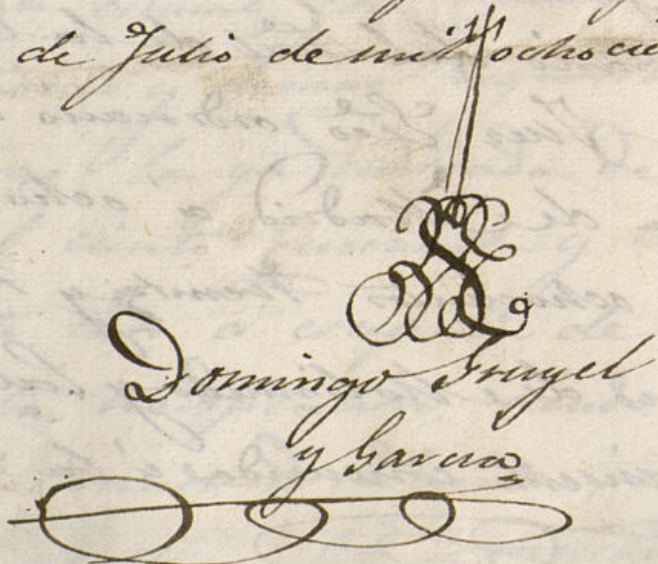 de Julio de mil ochocie
Domingo Truyel
y Garcia